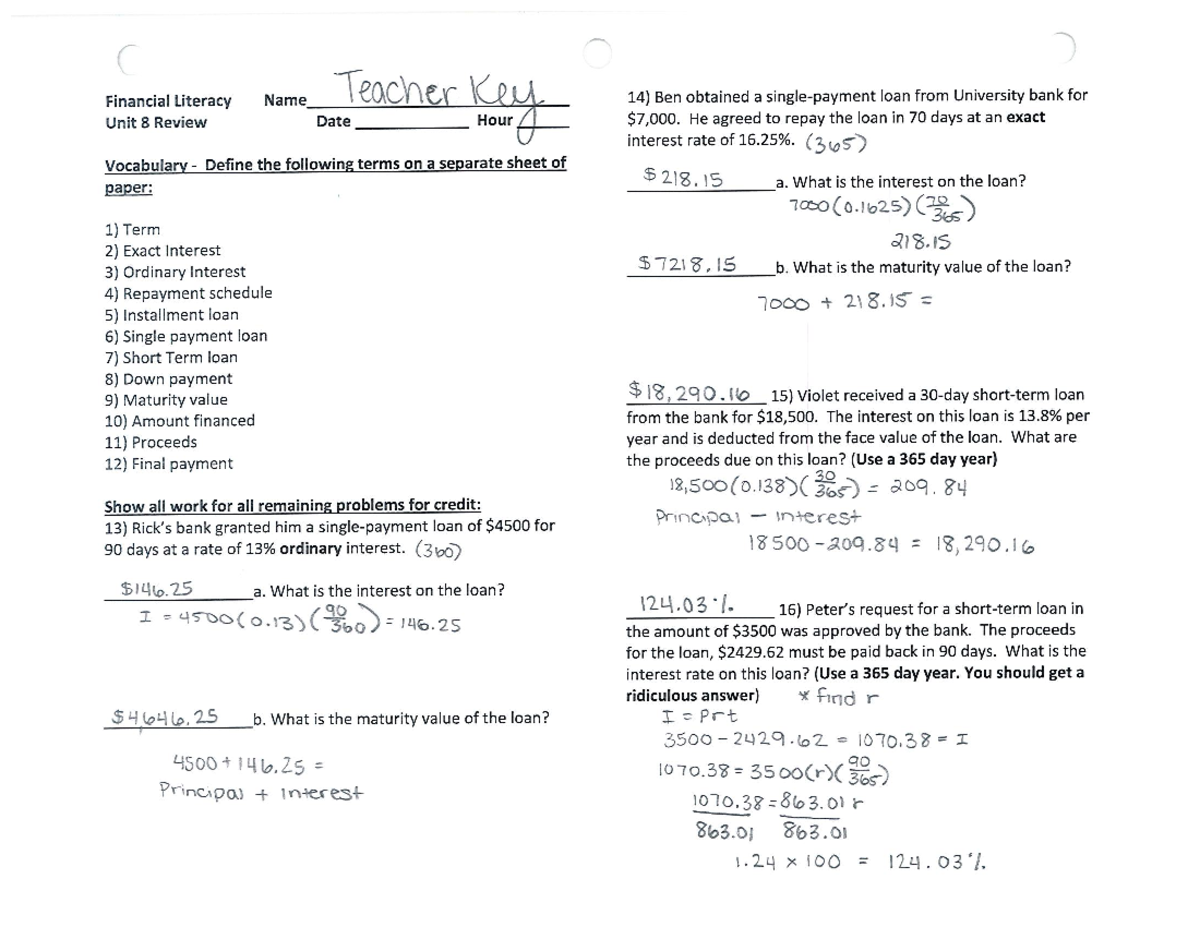 Financial Literacy Name Teacher Key
Unit 8 Review Date Hour
Vocabulary - Define the following terms on a separate sheet of
paper:
1) Term
2) Exact Interest
3) Ordinary Interest
4) Repayment schedule
5) Installment loan
6) Single payment loan
7) Short Term loan
8) Down payment
9) Maturity value
10) Amount financed
11) Proceeds
12) Final payment
Show all work for all remaining problems for credit:
13) Rick's bank granted him a single-payment loan of $4500 for
90 days at a rate of 13% ordinary interest. (360)
$146.25 a. What is the interest on the loan?
I = 4500(0.13)(90/360) = 146.25
$4,646.25 b. What is the maturity value of the loan?
4500 + 146.25 =
Principal + interest
14) Ben obtained a single-payment loan from University bank for
$7,000. He agreed to repay the loan in 70 days at an exact
interest rate of 16.25%. (365)
$218.15 a. What is the interest on the loan?
7000(0.1625)(70/365)
218.15
$7218.15 b. What is the maturity value of the loan?
7000 + 218.15 =
$18,290.16 15) Violet received a 30-day short-term loan
from the bank for $18,500. The interest on this loan is 13.8% per
year and is deducted from the face value of the loan. What are
the proceeds due on this loan? (Use a 365 day year)
18,500(0.138)(30/365) = 209.84
Principal - interest
18500 - 209.84 = 18,290.16
124.03% 16) Peter's request for a short-term loan in
the amount of $3500 was approved by the bank. The proceeds
for the loan, $2429.62 must be paid back in 90 days. What is the
interest rate on this loan? (Use a 365 day year. You should get a
ridiculous answer) * find r
I = Prt
3500 - 2429.62 = 1070.38 = I
1070.38 = 3500(r)(90/365)
1070.38 = 863.01 r
863.01 863.01
1.24 x 100 = 124.03%